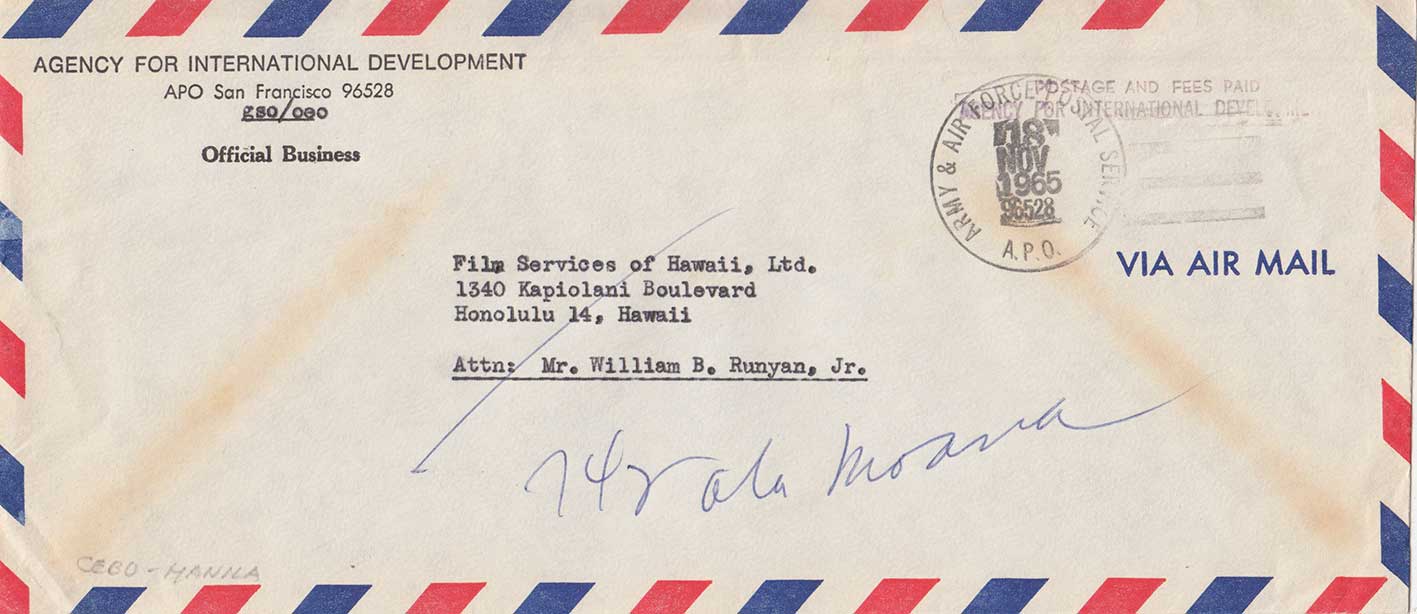 AGENCY FOR INTERNATIONAL DEVELOPMENT
APO San Francisco 96528
gso/oeo
Official Business
POSTAGE AND FEES PAID
AGENCY FOR INTERNATIONAL DEVEL
ARMY & AIR FORCE POSTAL SERVICE
18
NOV
1965
96528
A.P.O.
VIA AIR MAIL
Film Services of Hawaii, Ltd.
1340 Kapiolani Boulevard
Honolulu 14, Hawaii
Attn: Mr. William B. Runyan, Jr.
Ala Moana
CEBO - MANILA